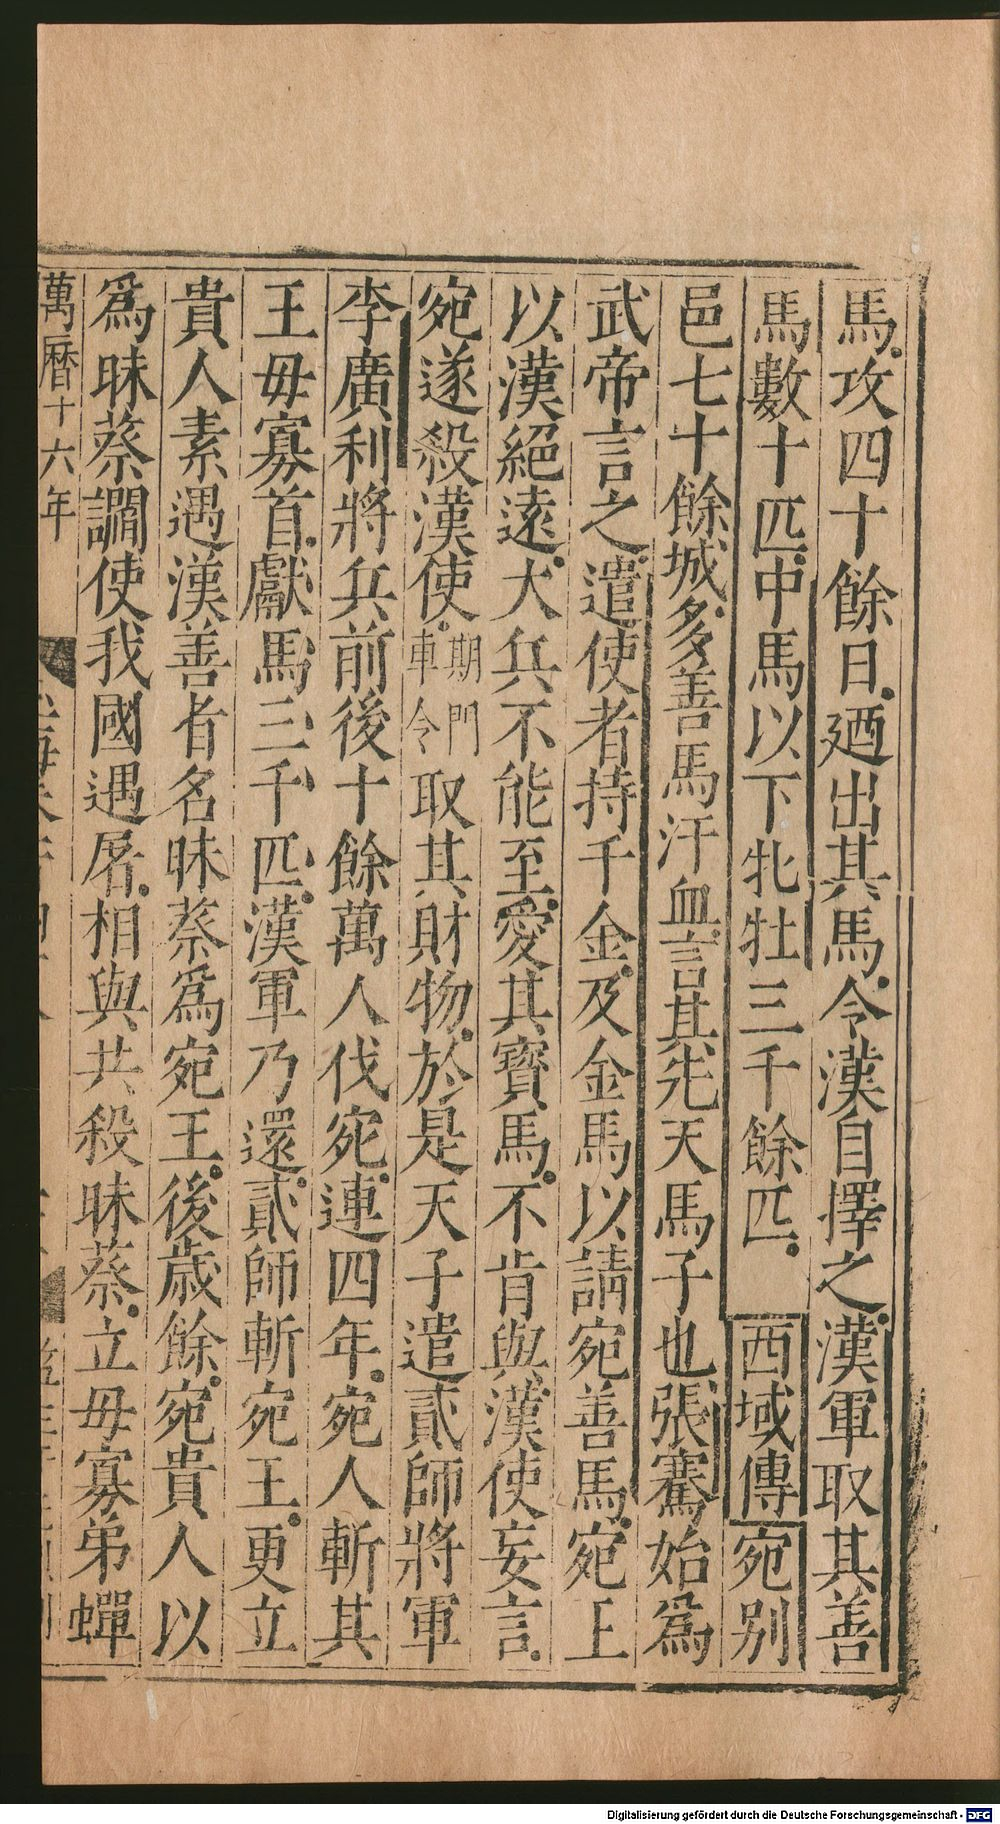 馬攻四十餘日廼出其馬令漢自擇之漢軍取其善
馬數十匹中馬以下牝牡三千餘匹西域傳宛別
邑七十餘城多善馬汗血言其先天馬子也張騫始爲
武帝言之遣使者持千金及金馬以請宛善馬宛王
以漢絕遠大兵不能至愛其寶馬不肯與漢使妄言
宛遂殺漢使期門車令取其財物於是天子遣貳師將軍
李廣利將兵前後十餘萬人伐宛連四年宛人斬其
王毋寡首獻馬三千匹漢軍乃還貳師斬宛王更立
貴人素遇漢善者名昧蔡爲宛王後歲餘宛貴人以
爲昧蔡讇使我國遇屠相與共殺昧蔡立毋寡弟蟬
萬曆十六年
Digitalisierung gefördert durch die Deutsche Forschungsgemeinschaft - DFG